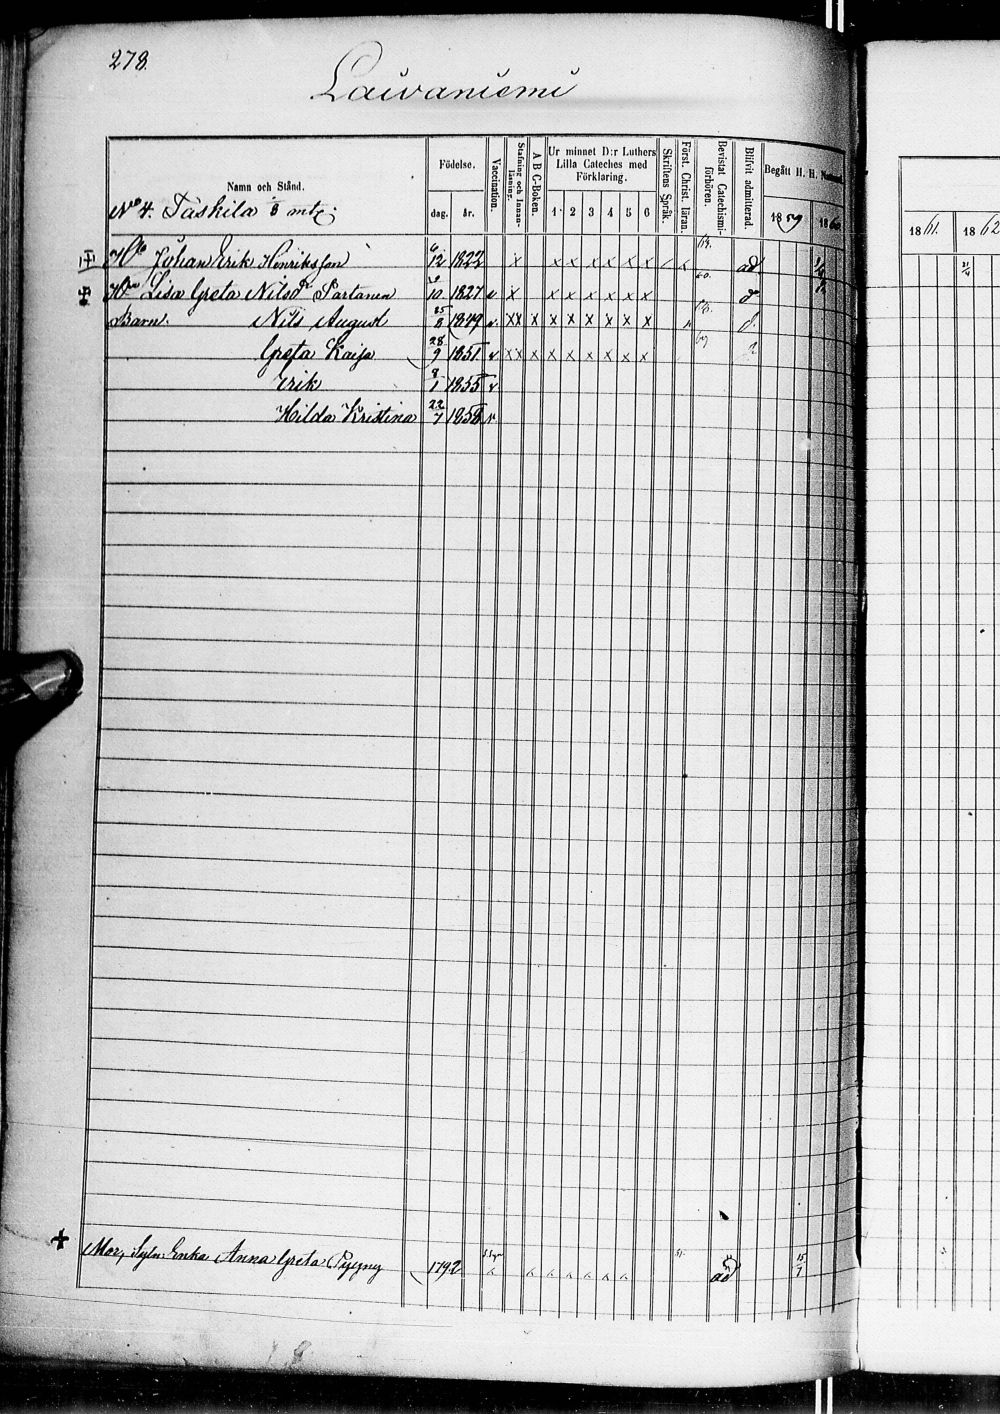 278.
Laivaniemi
Namn och Stånd.
Födelse.
dag. år.
Vaccination.
Stafning och Innanläsning.
A B C-Boken.
Ur minnet D:r Luthers Lilla Cateches med Förklaring.
1 2 3 4 5 6
Skriftens Språk.
Först. Christ. läran.
Bevistat Catechismiförhören.
Blifvit admitterad.
Begått H. H.
1859 1860
1861. 1862
No 4. Täskilä mtl;
Johan Erik Henriksson 6/12 1822 x x x x x x x ad
Lisa Greta Nilsdr Partanen 10 1827 v x x x x x x x
Barn. Nils August 25/8 1849 v. x x x x x x x x x
Greta Kaisa 28/9 1851 v x x x x x x x x x
Erik 8/1 1855 v
Hilda Kristina 22/7 1858 v
Mor, Enka Anna Greta 1792 ad 15/7